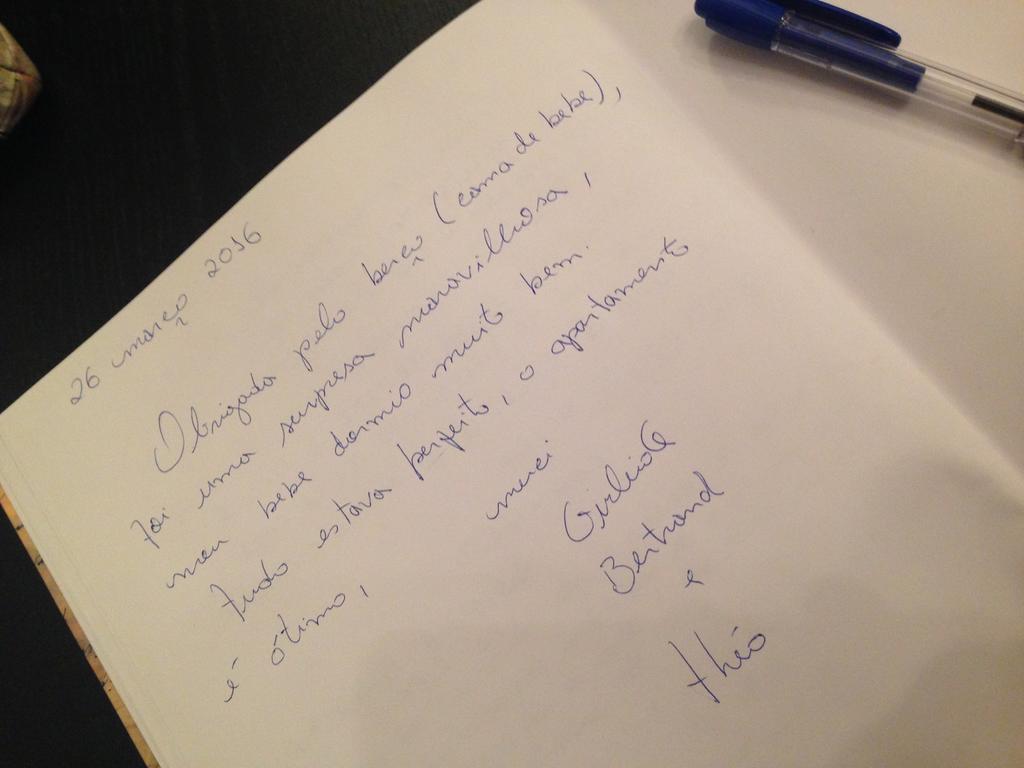 26 março 2016
Obrigada pelo berço (cama de bebe),
foi uma surpresa maravilhosa,
meu bebe dormio muito bem.
Tudo estava perfeito, o apartamento
é ótimo,
merci
Bertrand
e
Théo